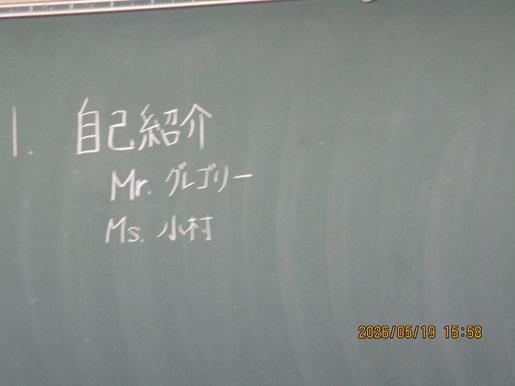 1. 自己紹介
Mr. グレゴリー
Ms. 小村
2026/05/19 15:58